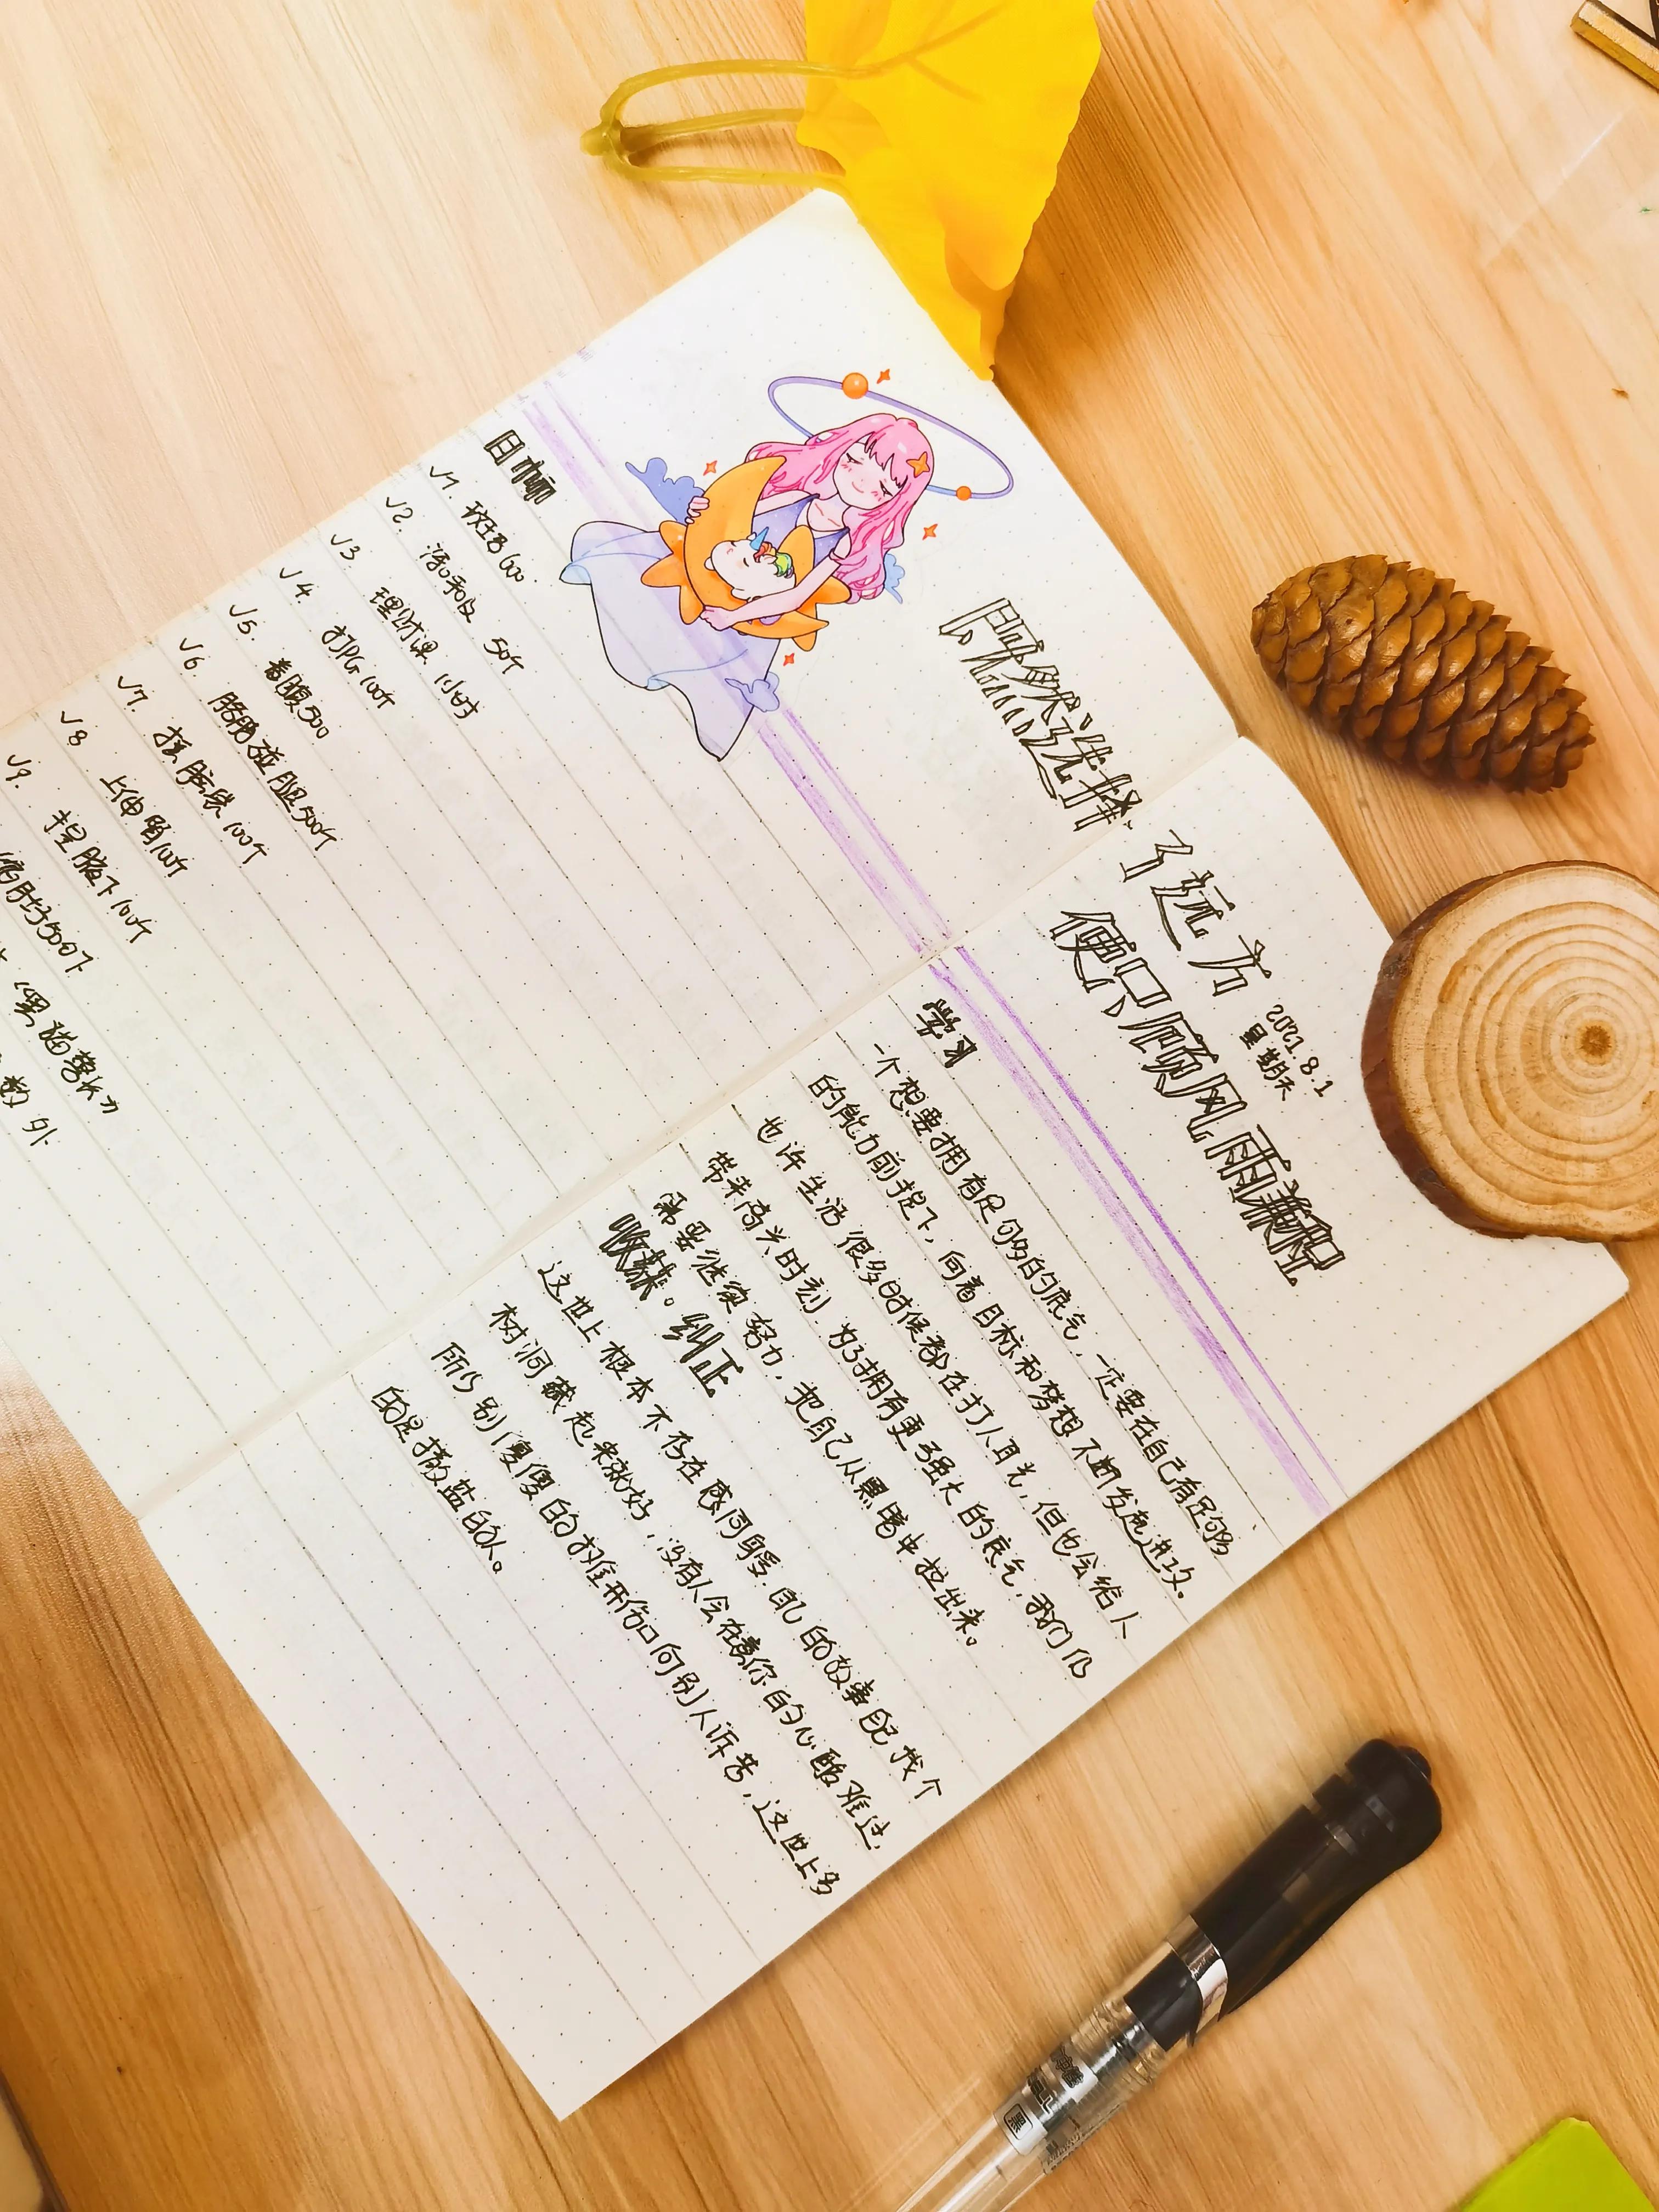 既然选择
了远方
便只顾风雨兼程
2021.8.1
星期天
目标
√1.
√2. 50个
√3. 理财课 1小时
√4. 打PG 100个
√5. 卷腹500
√6. 胳膊碰腿500个
√7. 100个
√8. 上伸臂100个
√9. 捏腋下100个
500下
数 外
学习
一个想要拥有足够的底气,一定要在自己有足够
的能力前提下,向着目标和梦想不断发起进攻。
也许生活很多时候都在打人耳光,但也会给人
带来高光时刻,为了拥有更强大的底气,我们仍
需要继续努力,把自己从黑暗中拉出来。
收获。纠正
这世上根本不存在感同身受,自己的故事自己找个
树洞藏起来就好,没有人会在意你的心酸难过,
所以别傻傻的扒开伤口向别人诉苦,这世上多
的是撒盐的人。
黑